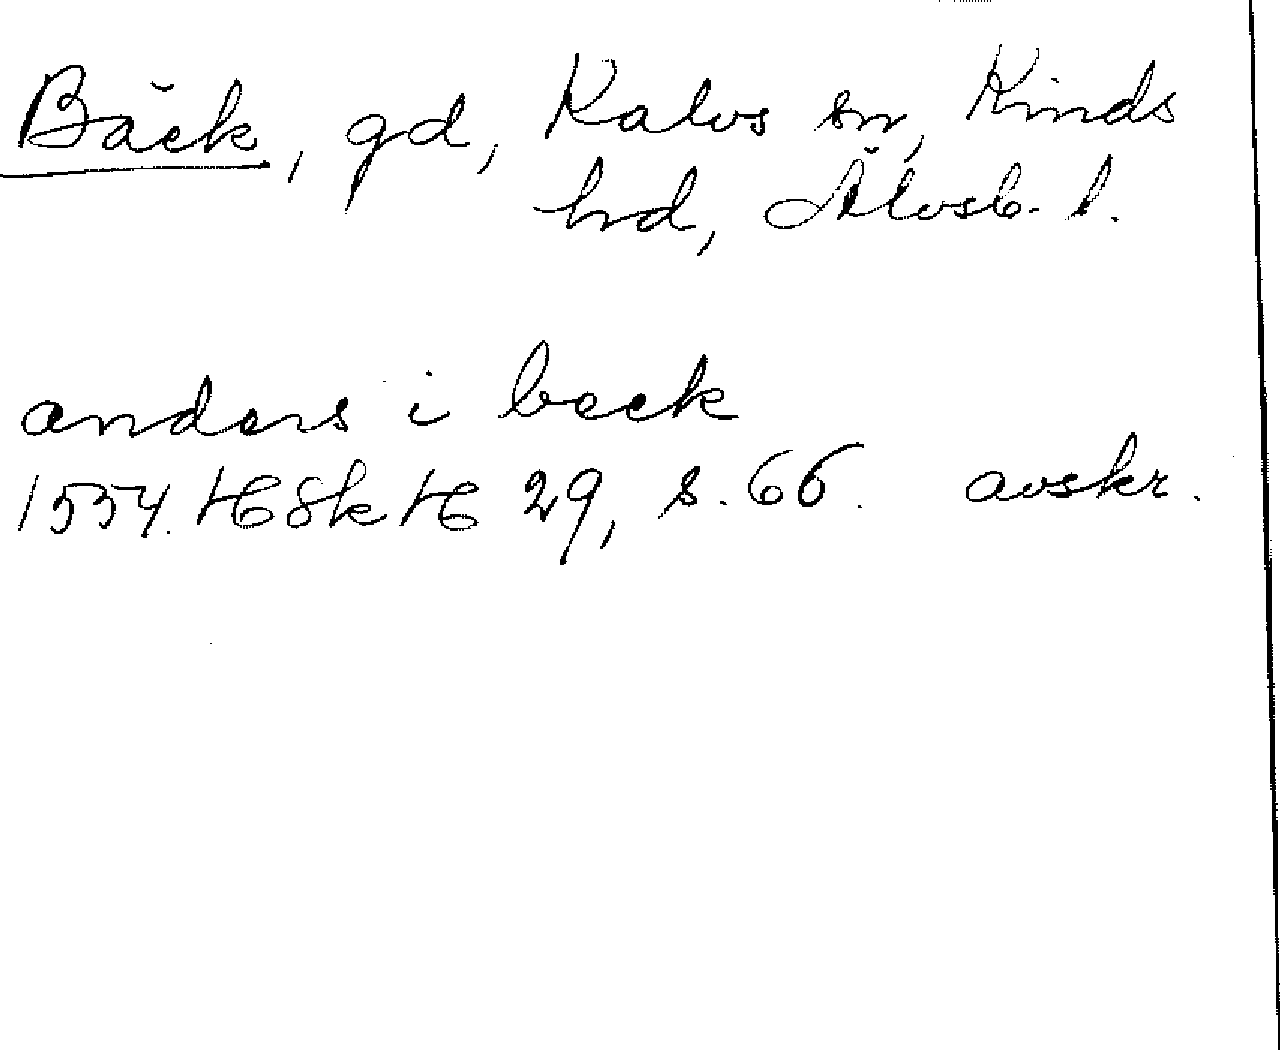 Bäck, gd, Kalvs sn, Kinds
hrd, Älvsb. l.
anders i beck
1554. HSkH 29, s. 66. avskr.